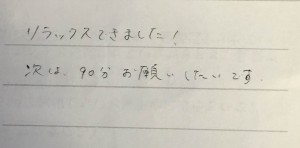 リラックスできました!
次は、90分お願いしたいです.